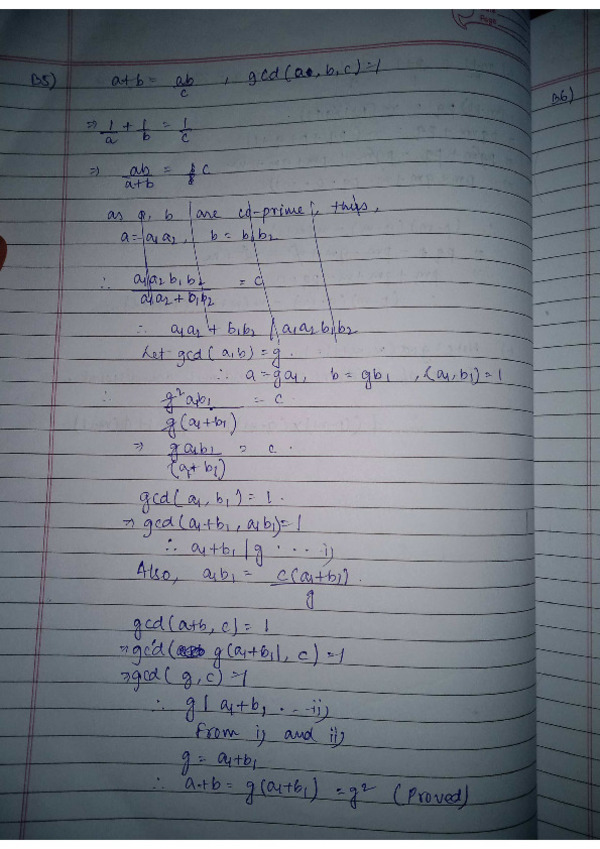 Page
B5) a+b = ab/c , gcd(a, b, c)=1
B6)
⇒ 1/a + 1/b = 1/c
⇒ ab/a+b = c
as a, b are co-prime, thus,
a = a₁a₂, b = b₁b₂
∴ a₁a₂b₁b₂/a₁a₂+b₁b₂ = c
∴ a₁a₂ + b₁b₂ | a₁a₂b₁b₂
Let gcd(a,b) = g.
∴ a = ga₁, b = gb₁ , (a₁,b₁)=1
∴ g²a₁b₁/g(a₁+b₁) = c
⇒ ga₁b₁/(a₁+b₁) = c.
gcd(a₁, b₁)=1.
⇒ gcd(a₁+b₁, a₁b₁)=1
∴ a₁+b₁ | g .... i)
Also, a₁b₁ = c(a₁+b₁)/g.
gcd(a+b, c) = 1
⇒ gcd( g(a₁+b₁), c)=1
⇒ gcd(g,c)=1
∴ g | a₁+b₁ ....ii)
From i) and ii)
g = a₁+b₁
∴ a+b = g(a₁+b₁) = g² (Proved)